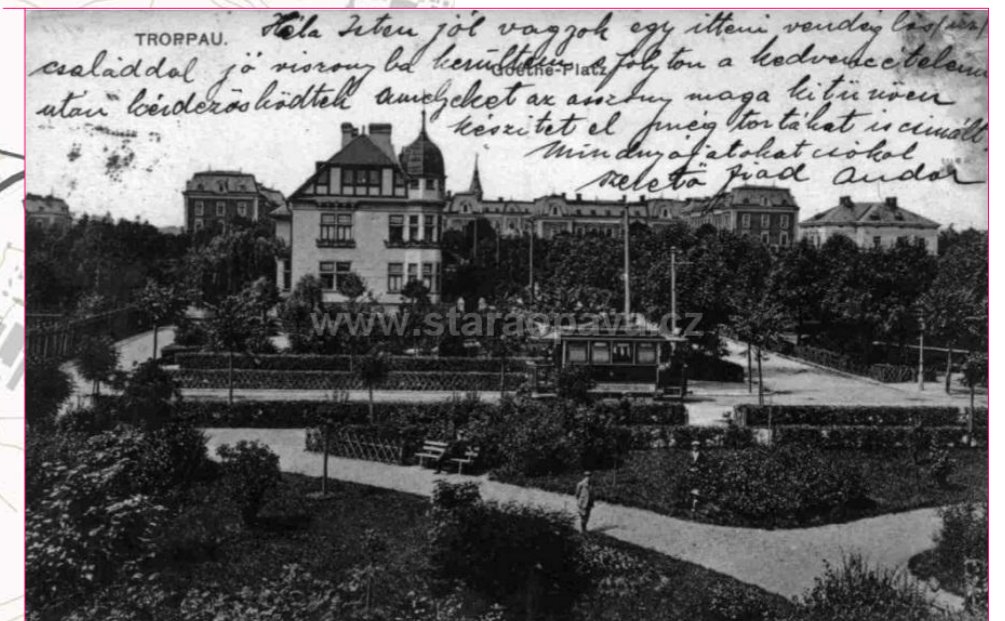 TROPPAU.
Goethe-Platz
Hála Isten jól vagyok egy itteni vendég
családdal jó viszonyba kerültem s folyton a kedvenc ételeim
után kérdezősködtek amelyeket az asszony maga kitünöen
készitet el még tortákat is csinált.
Mindnyájatokat csókol
szerető fiad Andor
www.staraopava.cz